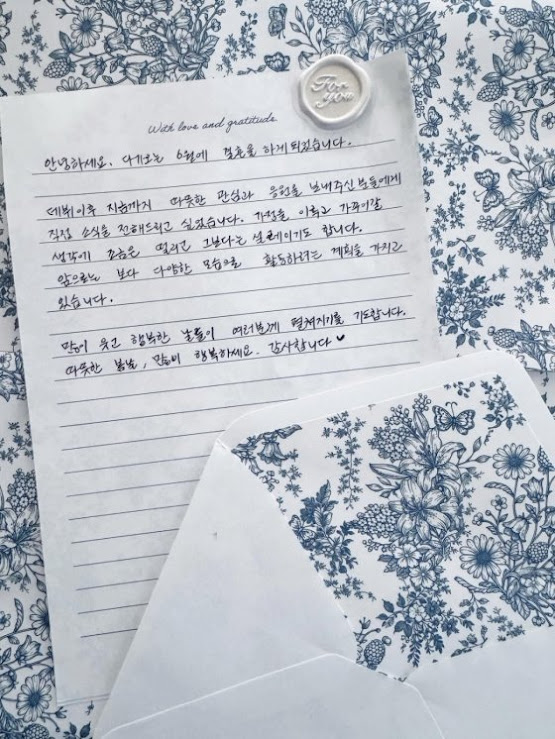 For you
With love and gratitude
안녕하세요. 다가오는 6월에 결혼을 하게 되었습니다.
데뷔이후 지금까지 따뜻한 관심과 응원을 보내주신 분들에게
직접 소식을 전해드리고 싶었습니다. 가정을 이루고 가꾸어갈
생각에 조금은 떨리고 그보다는 설레이기도 합니다.
앞으로는 보다 다양한 모습으로 활동하려는 계획을 가지고
있습니다.
많이 웃고 행복한 날들이 여러분께 펼쳐지기를 기도합니다.
따뜻한 봄날, 많이 행복하세요. 감사합니다 ♥